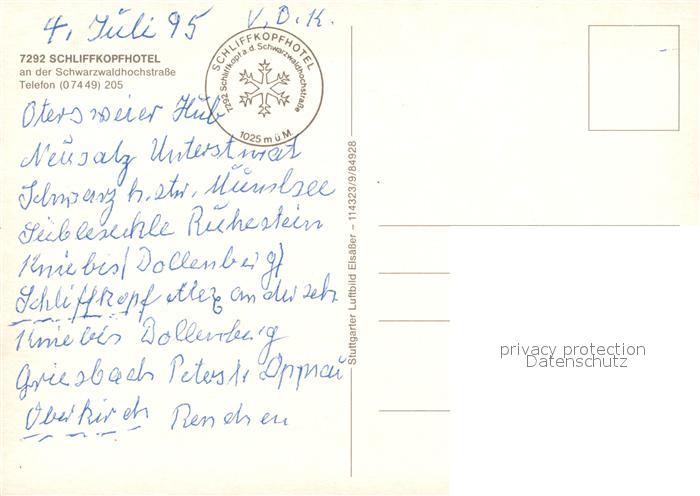 4. Juli 95 V.D.K.
7292 SCHLIFFKOPFHOTEL
an der Schwarzwaldhochstraße
Telefon (07449) 205
SCHLIFFKOPFHOTEL
7292 Schliffkopf a.d. Schwarzwaldhochstraße
1025 m ü.M.
Otersweier Hub
Neusatz Unterstmat
Schwarz h. str. Mumlsee
Ruhestein
Kniebis (Dollenberg)
Schliffkopf an der
Kniebis Dollenberg
Griesbach Peterst. Oppnau
Oberkirch Renchen
Stuttgarter Luftbild Elsäßer – 114323/9/84928
privacy protection
Datenschutz